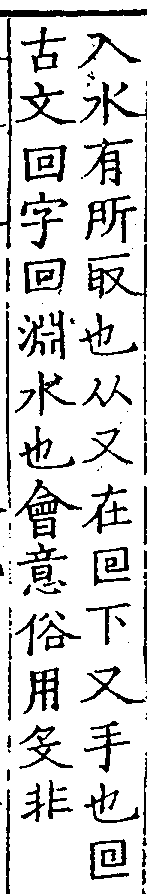 入水有所取也从又在囘下又手也囘
古文回字回淵水也會意俗用殳非